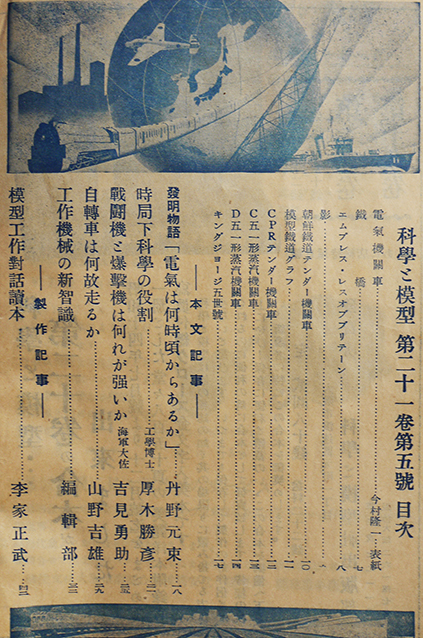 科學と模型 第二十一卷第五號 目次
電氣機關車……今村隆一…表紙
鐵橋……七
エムプレス・レスオブブリテーン……八
影……
朝鮮鐵道テンダー機關車……一〇
模型鐵道グラフ……一一
CPRテンダー機關車……一二
C五一形蒸汽機關車……一三
D五一形蒸汽機關車……一四
キングジョージ五世號……一七
——本文記事——
發明物語「電氣は何時頃からあるか」…丹野元東…一八
時局下科學の役割……工學博士 厚木勝彦…二一
戰鬪機と爆擊機は何れが强いか 海軍大佐 吉見勇助…二五
自轉車は何故走るか……山野吉雄…二九
工作機械の新智識……編輯部…三三
——製作記事——
模型工作對話讀本……李家正武…四三